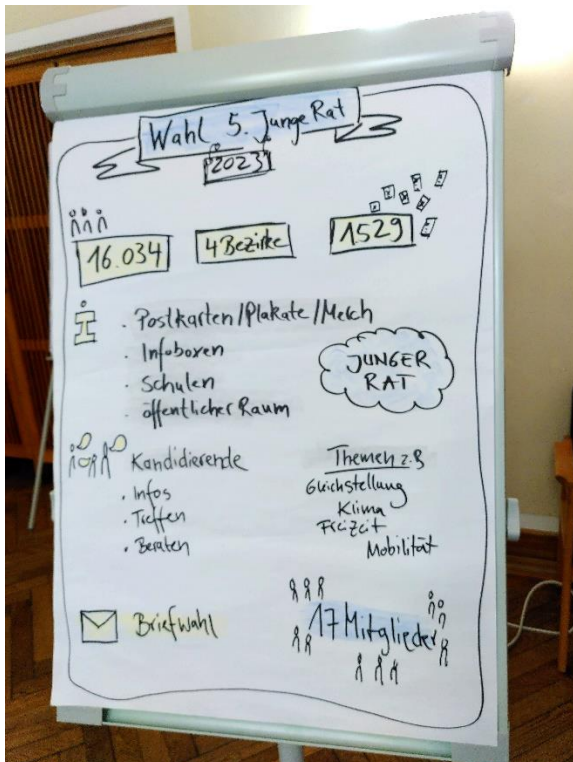 Wahl 5. Junge Rat
2023
16.034
4 Bezirke
1529
. Postkarten/Plakate/Merch
. Infoboxen
. Schulen
. öffentlicher Raum
JUNGER
RAT
Kandidierende
. Infos
. Treffen
. Beraten
Themen z.B
Gleichstellung
Klima
Freizeit
Mobilität
Briefwahl
17 Mitglieder